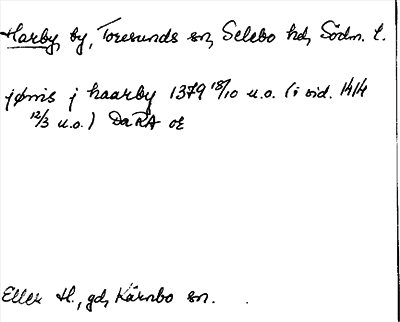 Harby by, Toresunds sn, Selebo hd, Södm. l.
jønis j haarby 1379 18/10 u.o. (i vid. 1414
12/3 u.o.) DaRA or
Eller H., gd, Kärnbo sn.